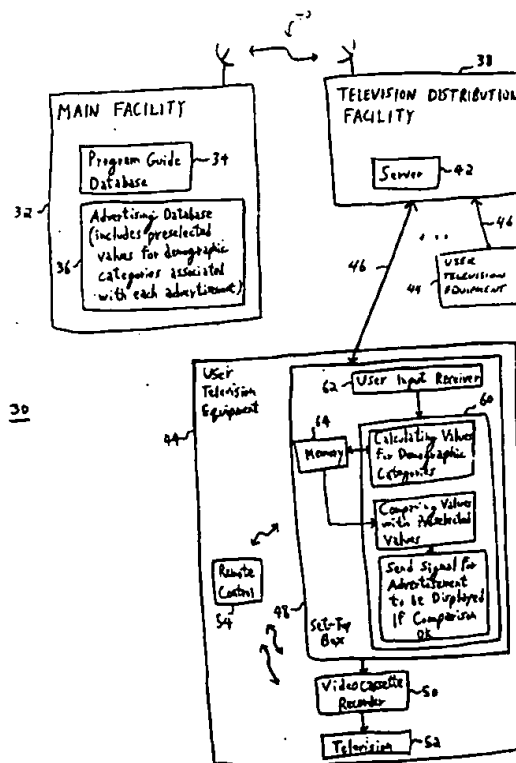 MAIN FACILITY
Program Guide
Database
34
32
36
Advertising Database
(includes preselected
values for demographic
categories associated
with each advertisement)
38
TELEVISION DISTRIBUTION
FACILITY
Server
42
46
46
...
USER
TELEVISION
EQUIPMENT
44
30
User
Television
Equipment
44
62
User Input Receiver
60
64
Memory
Calculating Values
for Demographic
Categories
Comparing Values
with Preselected
Values
Send Signal for
Advertisement
to be Displayed
If Comparison
OK
Remote
Control
54
48
Set-Top
Box
Videocassette
Recorder
50
Television
52